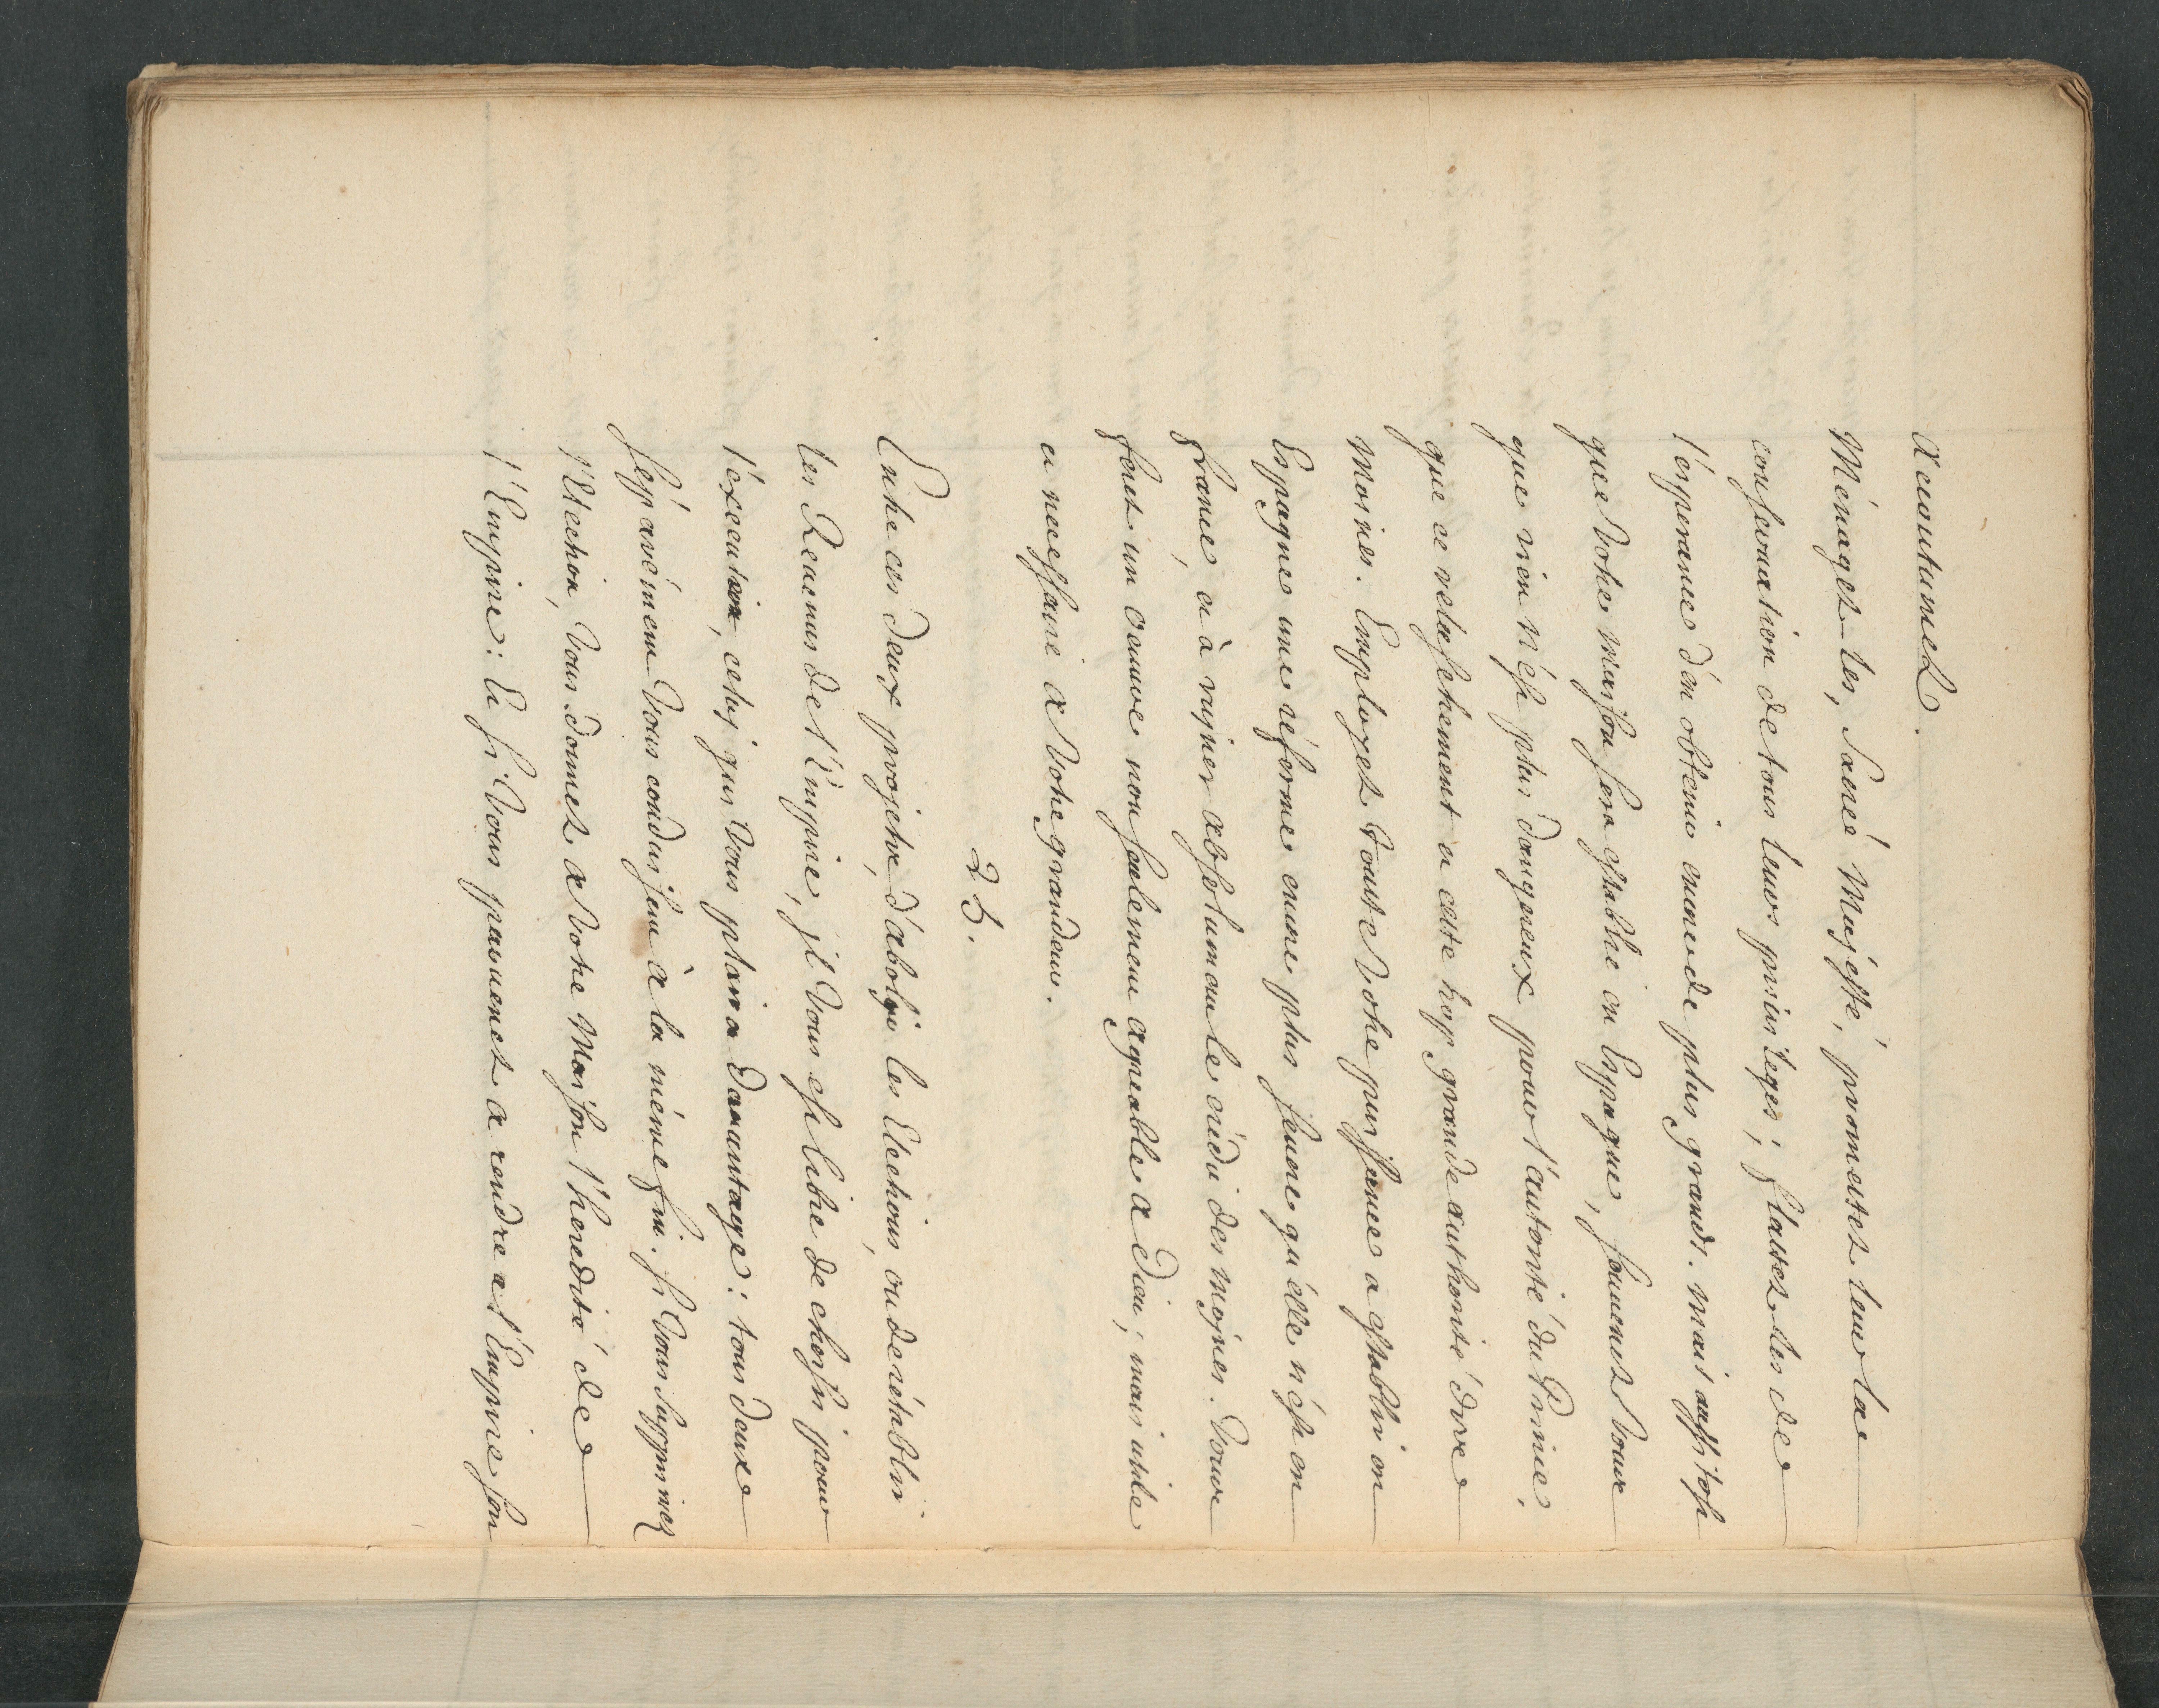 accoutumez.
Ménagez-les, Sacré Majesté, promettez leur la
conservation de tous leurs privileges; flattez-les de
l'ésperance d'en obtenir encore de plus grands. mais aussitost
que Votre maison sera establie en Espagne, souvenez vous
que rien n'est plus dangereux pour l'autorité du Prince,
que ce relaschement et cette trop grande authorité dvec
Moines. Employez toute Votre puissance a establir en
Espagne une réforme encore plus severe qu'élle n'ést en
france, et à ruiner absolument le crédit des moynes. Vous
ferez un oeuvre non seulement agreable a Dieu; mais utile
et necessaire a Votre grandeur.
25.
Entre ces deux projets, d'abolir les Elections, ou de rétablir
les Recennes de l'Empire, jl Vous est libre de choisir pour
l'éxecution, celuy qui Vous plaira davantage: tous deux
séparément Vous conduisent à la méme fin. si Vous supprimez
l'Election, Vous donnez a Votre Maison l'heredité de
l'Empire: Et si Vous parvenez a rendre a l'Empire son